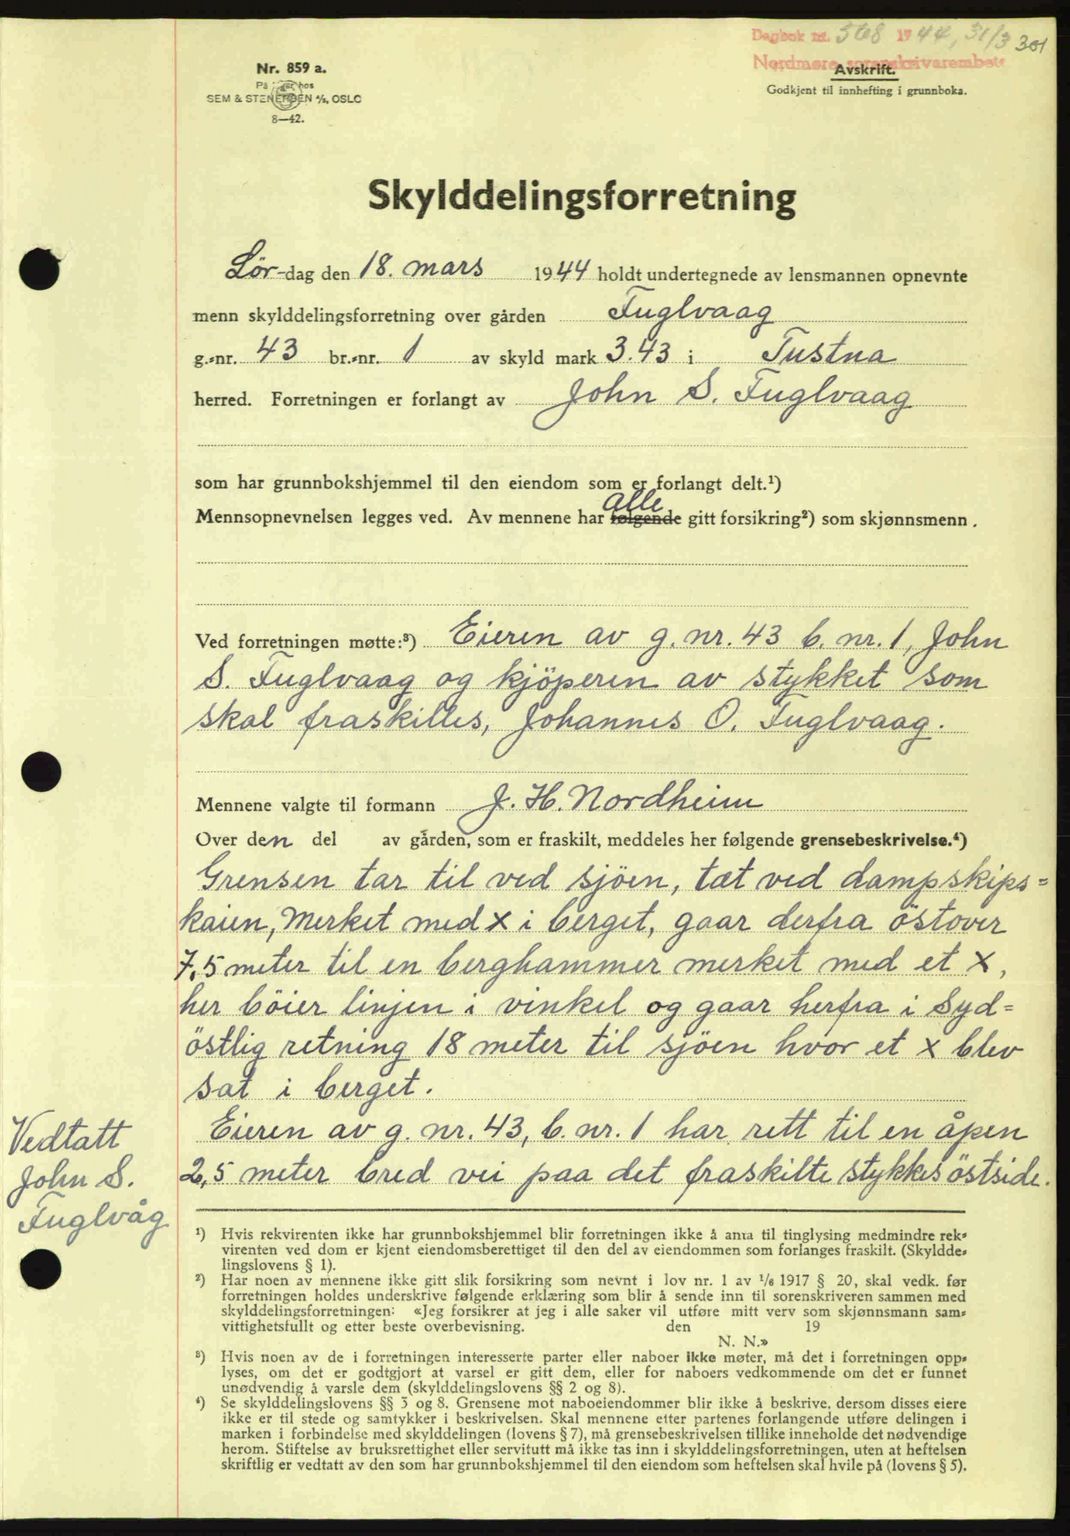 Dagbok nr. 568 1944, 31/3 301
Nordmøre sorenskrivarembete
Nr. 859 a.
På lager hos
SEM & STENERSEN A/S, OSLO
8—42.
Avskrift.
Godkjent til innhefting i grunnboka.
Skylddelingsforretning
Lör-dag den 18. mars 1944 holdt undertegnede av lensmannen opnevnte
menn skylddelingsforretning over gården Fuglvaag
g.-nr. 43 br.-nr. 1 av skyld mark 3.43 i Tustna
herred. Forretningen er forlangt av John S. Fuglvaag
som har grunnbokshjemmel til den eiendom som er forlangt delt.¹)
alle
Mennsopnevnelsen legges ved. Av mennene har følgende gitt forsikring²) som skjønnsmenn.
Ved forretningen møtte:³) Eieren av g. nr. 43 b. nr. 1, John
S. Fuglvaag og kjöperen av stykket som
skal fraskilles, Johannes O. Fuglvaag.
Mennene valgte til formann J. H. Nordheim
Over den del av gården, som er fraskilt, meddeles her følgende grensebeskrivelse.⁴)
Grensen tar til ved sjöen, tæt ved dampskips=
kaien, Merket med X i berget, gaar derfra östover
7,5 meter til en berghammer merket med et X,
her böier linjen i vinkel og gaar herfra i Syd=
östlig retning 18 meter til sjöen hvor et X blev
sat i berget.
Eieren av g. nr. 43, b. nr. 1 har rett til en åpen
2,5 meter bred vei paa det fraskilte stykkes östside.
Vedtatt
John S.
Fuglvåg
¹) Hvis rekvirenten ikke har grunnbokshjemmel blir forretningen ikke å anta til tinglysing medmindre rek-
virenten ved dom er kjent eiendomsberettiget til den del av eiendommen som forlanges fraskilt. (Skyldde-
lingslovens § 1).
²) Har noen av mennene ikke gitt slik forsikring som nevnt i lov nr. 1 av 1/6 1917 § 20, skal vedk. før
forretningen holdes underskrive følgende erklæring som blir å sende inn til sorenskriveren sammen med
skylddelingsforretningen: «Jeg forsikrer at jeg i alle saker vil utføre mitt verv som skjønnsmann sam-
vittighetsfullt og etter beste overbevisning. den 19
N. N.»
³) Hvis noen av de i forretningen interesserte parter eller naboer ikke møter, må det i forretningen opp-
lyses, om det er godtgjort at varsel er gitt dem, eller for naboers vedkommende om det er funnet
unødvendig å varsle dem (skylddelingslovens §§ 2 og 8).
⁴) Se skylddelingslovens §§ 3 og 8. Grensene mot naboeiendommer blir ikke å beskrive, dersom disses eiere
ikke er til stede og samtykker i beskrivelsen. Skal mennene etter partenes forlangende utføre delingen i
marken i forbindelse med skylddelingen (lovens § 7), må grensebeskrivelsen tillike inneholde det nødvendige
herom. Stiftelse av bruksrettighet eller servitutt må ikke tas inn i skylddelingsforretningen, uten at heftelsen
skriftlig er vedtatt av den som har grunnbokshjemmel til den eiendom som heftelsen skal hvile på (lovens § 5).